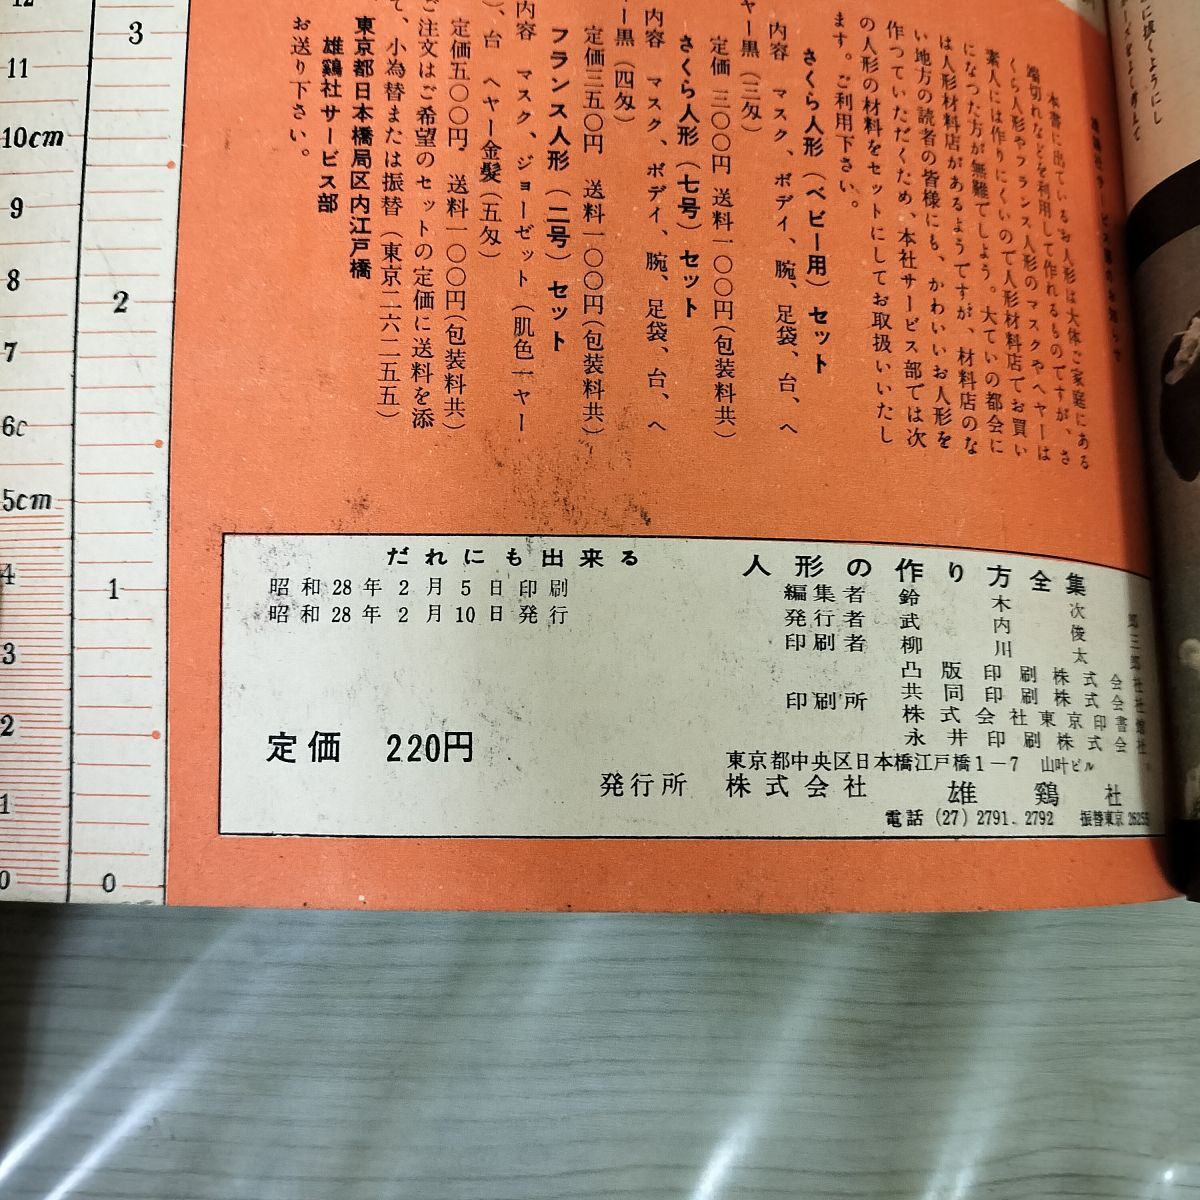 本書に出ているお人形は大体ご家庭にある
端切れなどを利用して作れるものですが、さ
くら人形やフランス人形のマスクやヘヤーは
素人には作りにくいので人形材料店でお買い
になった方が無難でしょう。大ていの都会に
は人形材料店があるようですが、材料店のな
い地方の読者の皆様にも、かわいいお人形を
作っていただくため、本社サービス部では次
の人形の材料をセットにしてお取扱いいたし
ます。ご利用下さい。
さくら人形(ベビー用)セット
内容 マスク、ボデイ、腕、足袋、台、ヘ
ヤー黒(三匁)
定価 三〇〇円 送料一〇〇円(包装料共)
さくら人形(七号)セット
内容 マスク、ボデイ、腕、足袋、台、ヘ
ヤー黒(四匁)
定価三五〇円 送料一〇〇円(包装料共)
フランス人形(二号)セット
内容 マスク、ジョーゼット(肌色一ヤー
)、台 ヘヤー金髪(五匁)
定価五〇〇円 送料一〇〇円(包装料共)
ご注文はご希望のセットの定価に送料を添
て、小為替または振替(東京二六二五五)
東京都日本橋局区内江戸橋
雄鶏社サービス部
お送り下さい。
だれにも出来る 人形の作り方全集
昭和28年2月5日印刷
昭和28年2月10日発行
定価 220円
編集者 鈴木次郎
発行者 武内俊三
印刷者 柳川太郎
印刷所 凸版印刷株式会社
共同印刷株式会社
株式会社東京印書館
永井印刷株式会社
東京都中央区日本橋江戸橋1-7 山叶ビル
発行所 株式会社 雄鶏社
電話 (27) 2791、2792 振替東京 26255
12
11
10cm
9
8
7
5cm
4
3
2
1
0
3
2
1
0